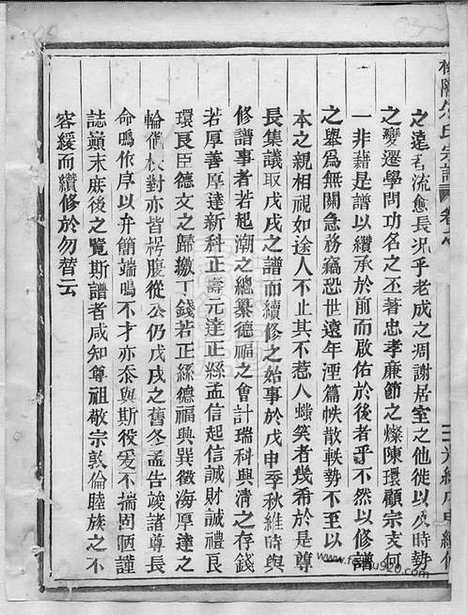 之遠者流愈長況乎老成之凋謝居室之他徙以及時勢
之變遷學問功名之丕著忠孝廉節之燦陳環顧宗支何
一非藉是譜以纘承於前而啟佑於後者乎不然以修譜
之舉為無關急務竊恐世遠年湮篇帙散軼勢不至以一
本之親相視如途人不止其不惹人蚩笑者幾希於是尊
長集議取戊戌之譜而續修之始事於戊申季秋維時與
修譜事者若起潮之總纂德福之會計瑞科興清之存錢
若厚善厚達新科正壽元達正銢孟信起信誠財誠禮良
環良臣德文之歸繳丁錢若正銢德福與巽徵海厚達之
輪俻校對亦皆枵腹從公仍戊戌之舊冬孟告竣諸尊長
命鳴作序以弁簡端鳴不才亦忝與斯役爰不揣固陋謹
誌巔末庶後之覽斯譜者咸知尊祖敬宗敦倫睦族之不
容緩而纘修於勿替云
氏宗譜 卷
光緒戊申續修